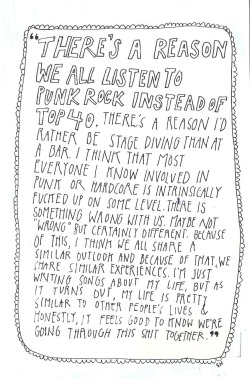 “THERE'S A REASON
WE ALL LISTEN TO
PUNK ROCK INSTEAD OF
TOP 40. THERE'S A REASON I'D
RATHER BE STAGE DIVING THAN AT
A BAR. I THINK THAT MOST
EVERYONE I KNOW INVOLVED IN
PUNK OR HARDCORE IS INTRINSICALLY
FUCKED UP ON SOME LEVEL. THERE IS
SOMETHING WRONG WITH US. MAYBE NOT
"WRONG" BUT CERTAINLY DIFFERENT. BECAUSE
OF THIS, I THINK WE ALL SHARE A
SIMILAR OUTLOOK AND BECAUSE OF THAT, WE
SHARE SIMILAR EXPERIENCES. I'M JUST
WRITING SONGS ABOUT MY LIFE, BUT AS
IT TURNS OUT, MY LIFE IS PRETTY
SIMILAR TO OTHER PEOPLE'S LIVES &
HONESTLY, IT FEELS GOOD TO KNOW WE'RE
GOING THROUGH THIS SHIT TOGETHER.”